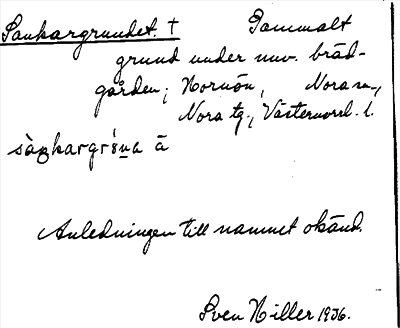 Sankargrundet. † Gammalt
grund under nuv. bräd-
gården; Hornön, Nora sn.,
Nora tg., Västernorrl. l.
sàŋkargrú̀na ä
Anledningen till namnet okänd.
Sven Hiller 1936.